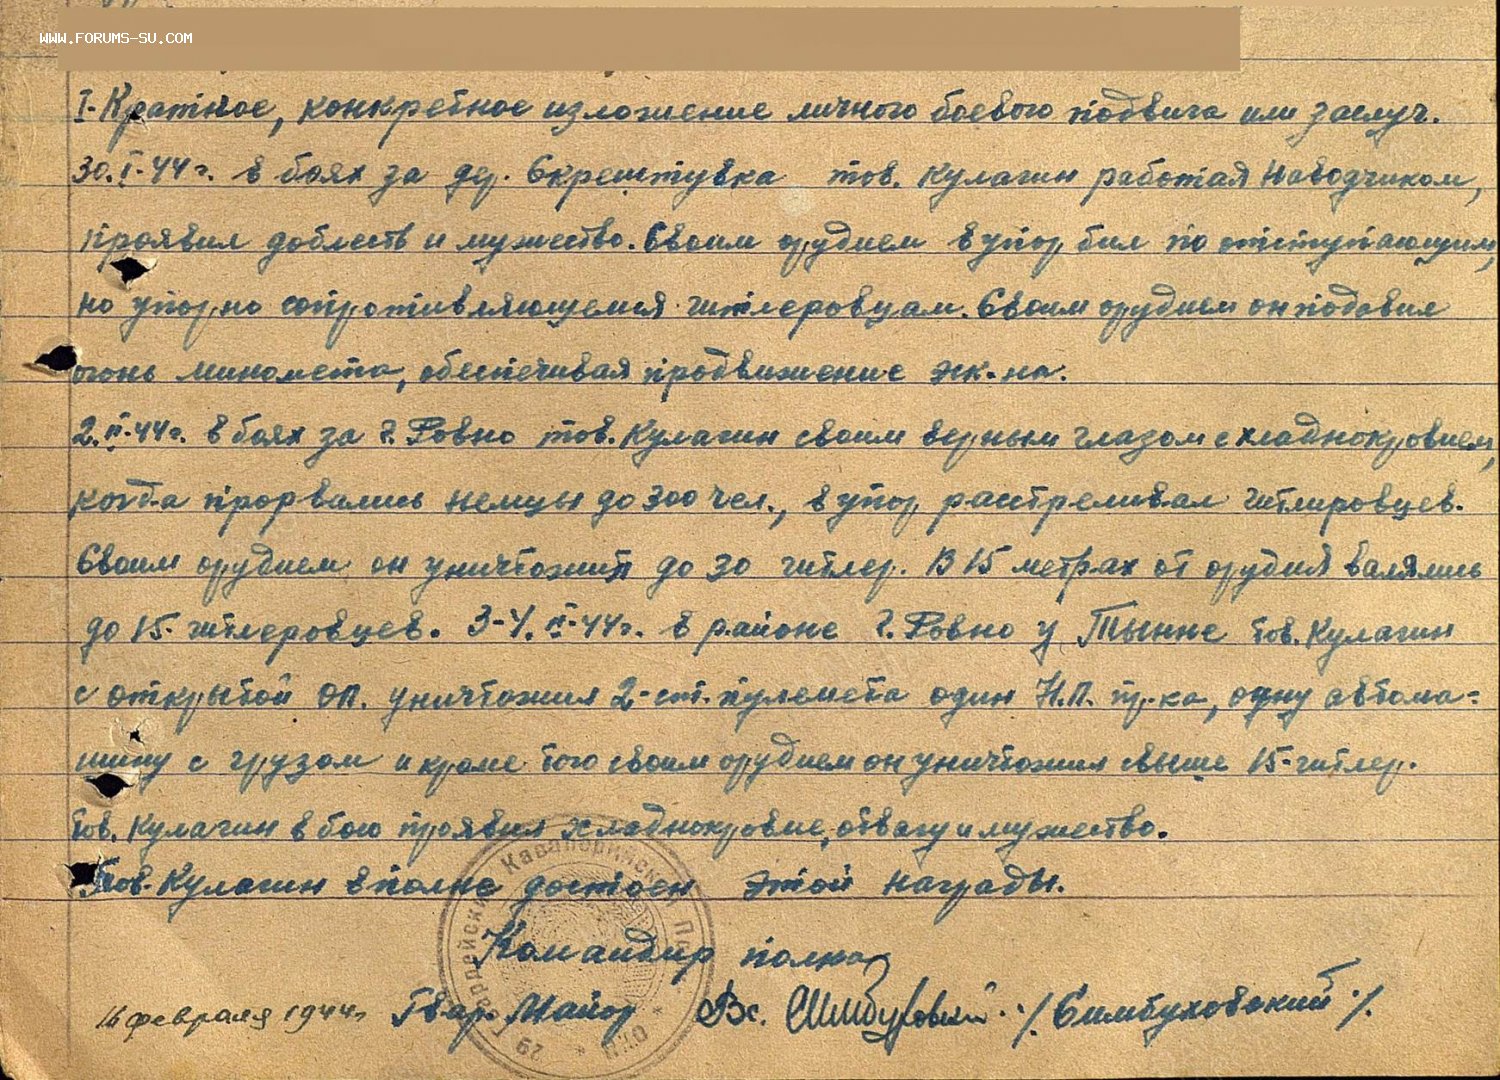 WWW.FORUMS-SU.COM
I-Краткое, конкретное изложение личного боевого подвига или заслуг.
30.I-44г. в боях за дер. тов. Кулагин работая наводчиком,
проявил доблесть и мужество. Своим орудием в упор бил по отступающим,
но упорно сопротивляющемся гитлеровцам. Своим орудием он подавил
огонь миномета, обеспечивая продвижение эск-на.
2.II-44г. в боях за г. Ровно тов. Кулагин своим верным глазом с хладнокровием,
когда прорвались немцы до 300 чел., в упор расстреливал гитлировцев.
Своим орудием он уничтожил до 30 гитлер. В 15 метрах от орудия валялись
до 15-гитлеровцев. 3-4.II-44г. в районе г. Ровно у Тынне тов. Кулагин
с открытой оп. уничтожил 2-ст. пулемета один Н.П. пр-ка, одну автома-
шину с грузом и кроме того своим орудием он уничтожил свыше 15-гитлер.
тов. Кулагин в бою проявил хладнокровие, отвагу и мужество.
Тов. Кулагин вполне достоен этой награды.
Командир полка
16 февраля 1944г Гвар. Майор /Симбуховский/.
Гвардейский Кавалерийский
29